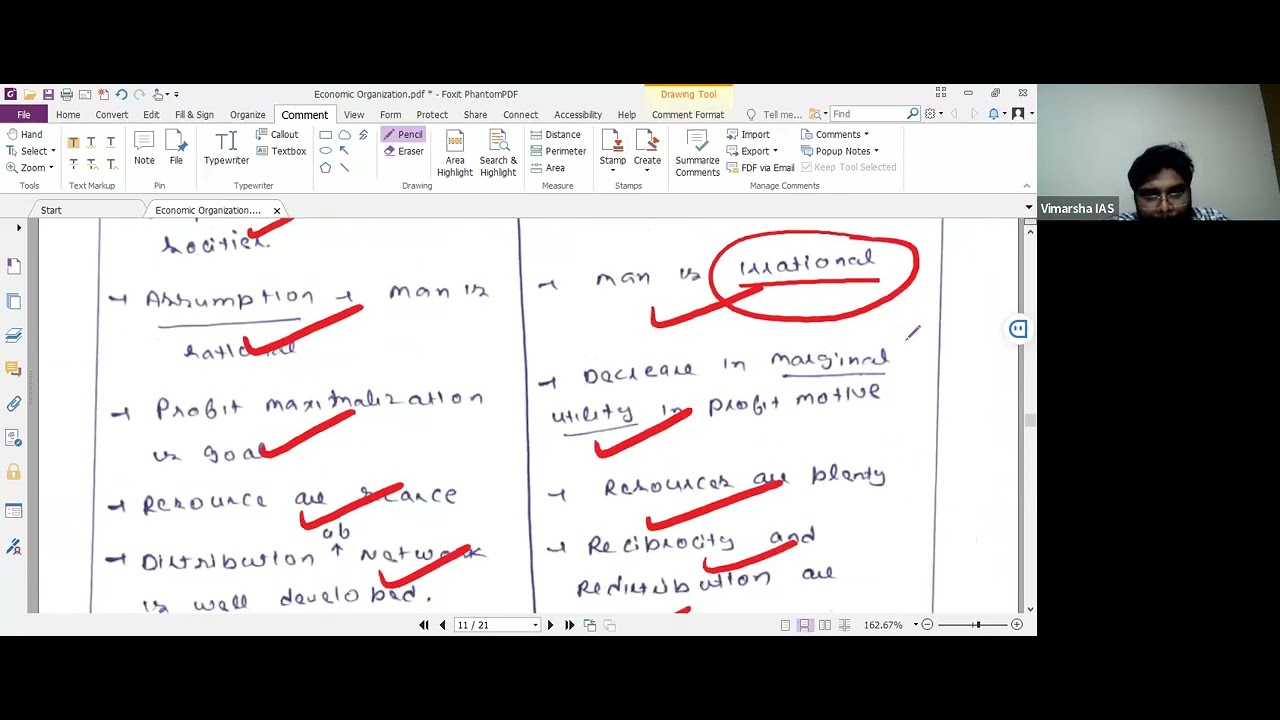 Economic Organization.pdf * - Foxit PhantomPDF
Drawing Tool
File Home Convert Edit Fill & Sign Organize Comment View Form Protect Share Connect Accessibility Help Comment Format Tell me... Find
Hand
Select
Zoom
Tools
Text Markup
Note
File
Pin
Typewriter
Callout
Textbox
Typewriter
Pencil
Eraser
Area Highlight
Search & Highlight
Drawing
Distance
Perimeter
Area
Measure
Stamp
Create
Stamps
Summarize Comments
Import
Export
FDF via Email
Comments
Popup Notes
Keep Tool Selected
Manage Comments
Start
Economic Organization....
Vimarsha IAS
societies.
Assumption → man is
rational
Profit maximalization
is goal
Resource are scarce
ob
Distribution ↑ Network
is well developed.
man is irrational
Decrease in marginal
utility in profit motive
Resources are plenty
Reciprocity and
Redistribution are
11 / 21
162.67%